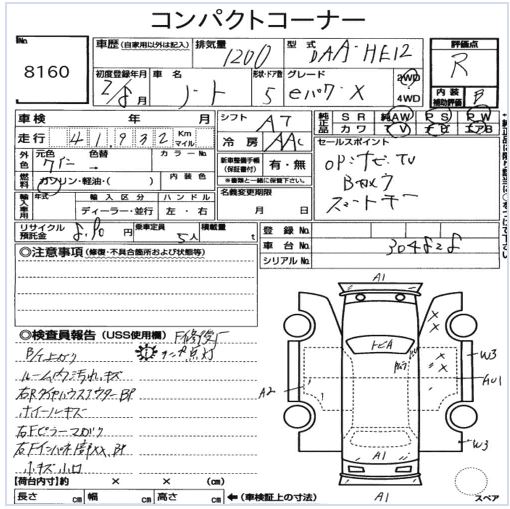 コンパクトコーナー
No. 8160
車歴 (自家用以外は記入) 排気量 1200 型式 DAA-HE12 評価点 R
初度登録年月 車名 ノート 形状・ドア数 5 グレード eパワーX 2WD 4WD 内装補助評価 B
車検 年 月 シフト A7 純正品 SR 純AW PS PW
走行 41,932 Km マイル 冷房 AAC カワ TV エアB
外色 元色 色替 カラーNo. 新車整備手帳(保証書付) 有・無 セールスポイント
燃料 ガソリン・軽油・( ) 内装色 ※書類と一緒に保管下さい。 OPナビ、TV
輸入車用 年式 輸入区分 ハンドル 名義変更期限 Bカメラ
ディーラー・並行 左・右 月 日 スマートキー
リサイクル預託金 円 乗車定員 5人 積載量 t 登録No.
◎注意事項 (修復・不具合箇所および状態等) 車台No. 304828
シリアルNo.
◎検査員報告 (USS使用欄) F修復厂
ランプ点灯
ルーム内汚れキズ
右RタイヤハウスアウターBP
ホイールキズ
右Fピラーマガリ
小キズ小凹
A1
X
X
X
W3
AU1
A2
W3
A1
A1
スペア
【荷台内寸】約 × × (cm)
長さ cm 幅 cm 高さ cm ←(車検証上の寸法)